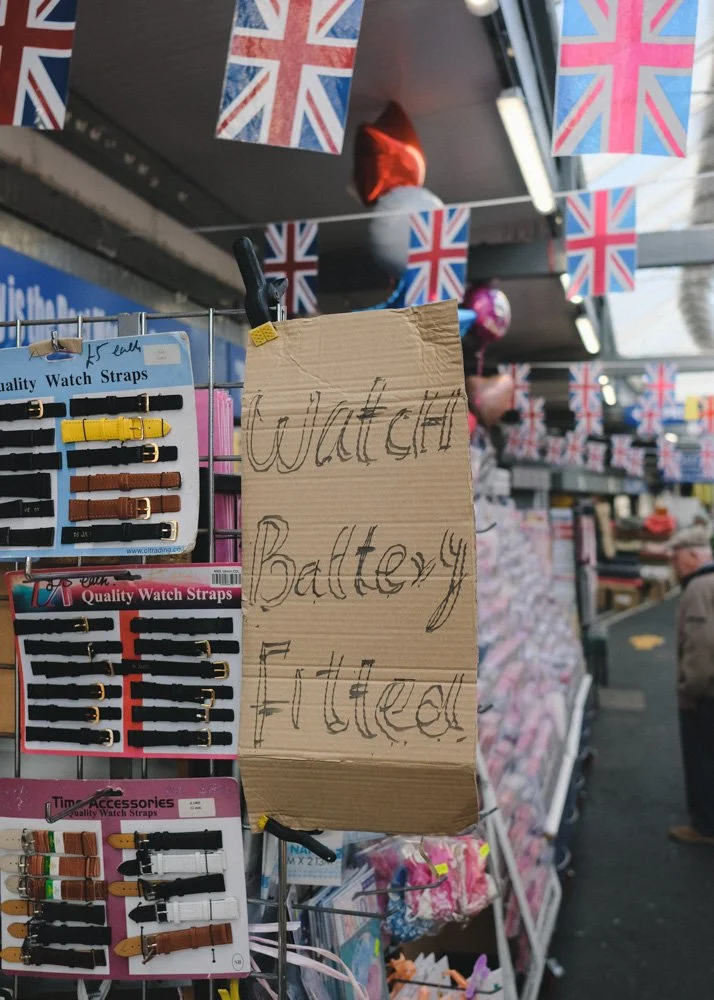 is the
£5 each
uality Watch Straps
www.citrading.co
£5 each
Quality Watch Straps
Time Accessories
Quality Watch Straps
WatcH
Battery
Fitted